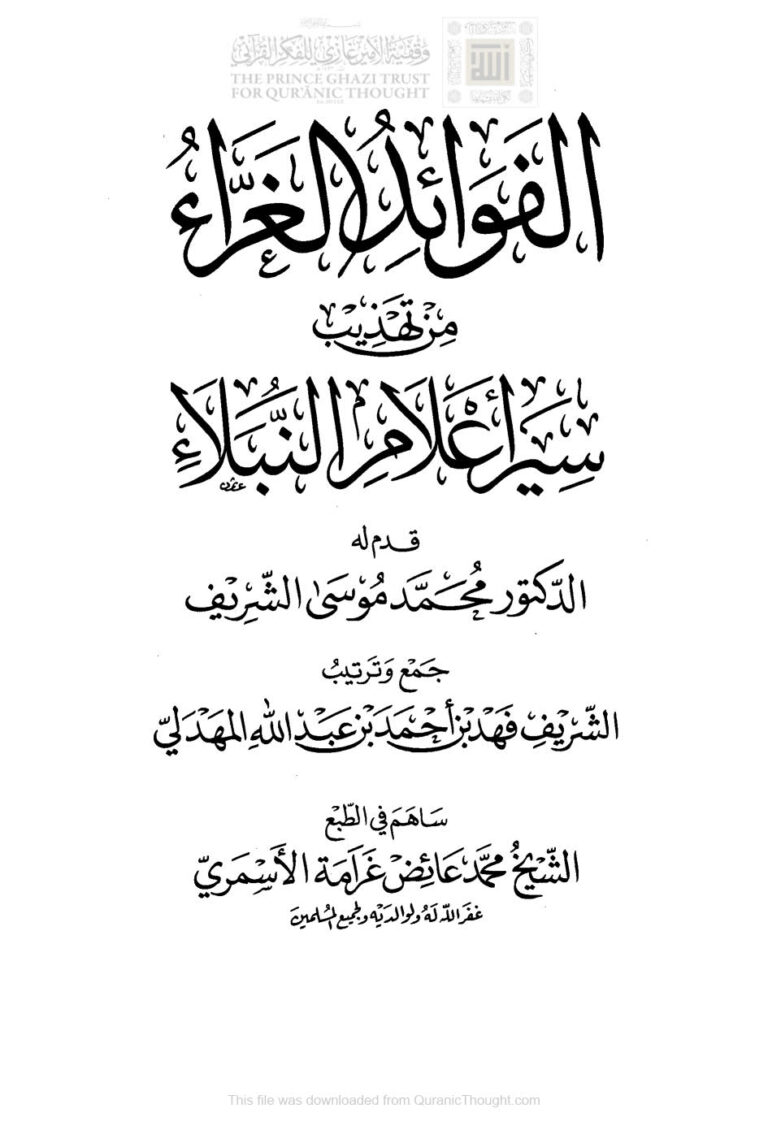 وقفية الأمير غازي للفكر القرآني
THE PRINCE GHAZI TRUST
FOR QUR'ĀNIC THOUGHT
الله
الفَوَائِدُ الغَرَّاءُ
مِنْ تَهْذِيبِ
سِيَرِ أَعْلَامِ النُّبَلَاءِ
قدم له
الدّكتور مُحَمَّد مُوسَىٰ الشَّرِيف
جَمْع وَتَرتيبُ
الشَّرِيفِ فَهَدْ بْن أَحْمَدَ بْن عَبْدِ اللهِ المَهْدَلِيّ
سَاهَمَ فِي الطَّبْع
الشَّيْخُ مُحَمَّد عَائِض غَرَامَة الأَسْمَرِيّ
غفَرَ اللّه لَهُ ولوالديْه ولجميع المُسْلمين
This file was downloaded from QuranicThought.com